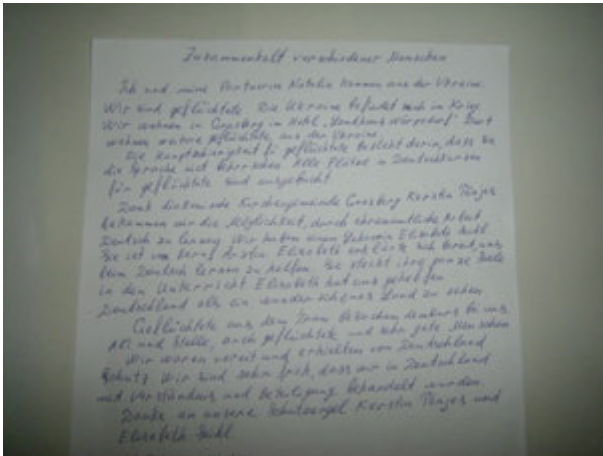 Zusammenhalt verschiedener Menschen
Ich und meine Partnerin Natalia kommen aus der Ukraine.
Wir sind geflüchtete. Die Ukraine befindet sich im Krieg
Wir wohnen in Hotel "Landhaus Dort
wohnen weitere geflüchtete aus der Ukraine
Die Hauptschwierigkeit für geflüchtete besteht darin, dass sie
die Sprache nicht Alle Plätze in Deutschkursen
für geflüchtete sind ausgebucht
Dank Kirchengemeinde Kerstin
bekommen wir die Möglichkeit, durch ehrenamtliche Arbeit
Deutsch zu lernen. Wir haben einen Elisabeth
Sie ist von Beruf Ärztin. Elisabeth erklärte sich bereit, uns
beim Deutsch lernen zu helfen. Sie steckt ihre ganze Seele
in den Unterricht Elisabeth hat uns geholfen
Deutschland als ein wunderschönes Land zu sehen
Geflüchtete aus dem Iran besuchen bei uns
Ali und auch geflüchtete und sehr gute Menschen
Wir waren und erhielten von Deutschland
Schutz Wir sind sehr froh, dass wir in Deutschland
mit Verständnis und behandelt wurden.
Danke an unsere Schutzengel Kerstin und
Elisabeth